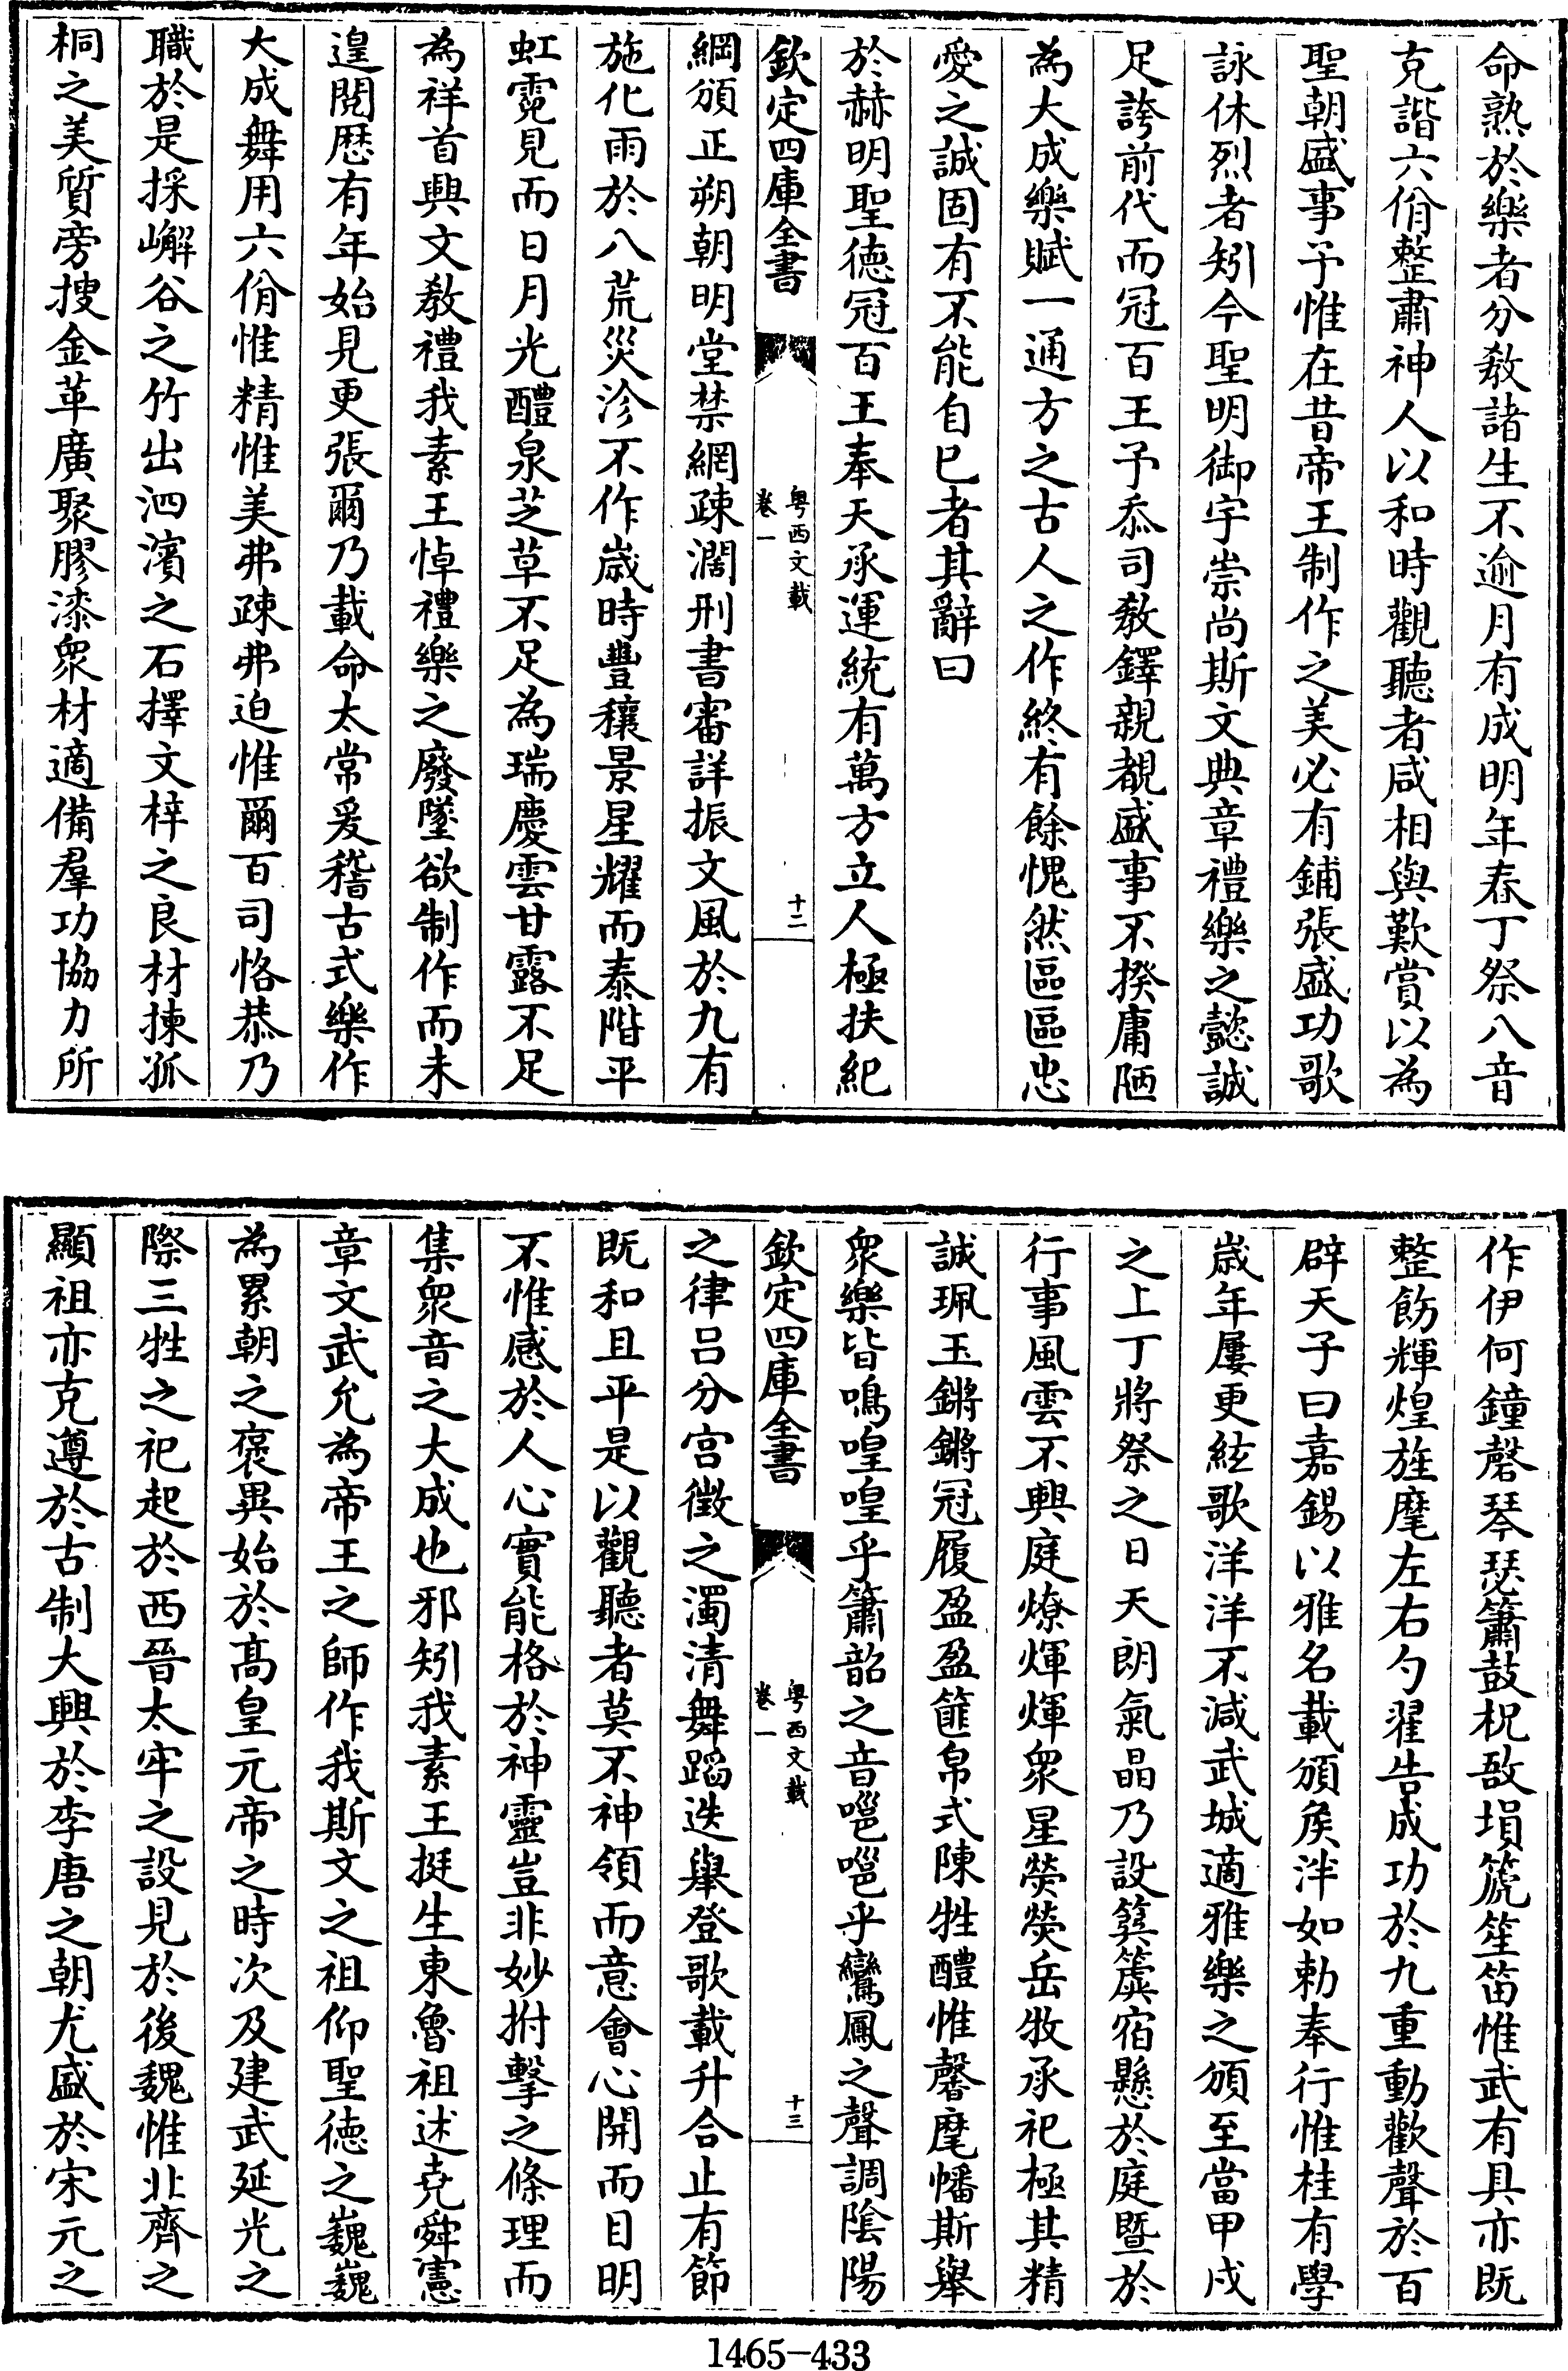 命熟於樂者分教諸生不逾月有成明年春丁祭八音
克諧六佾整肅神人以和時觀聽者咸相與歎賞以為
聖朝盛事予惟在昔帝王制作之美必有鋪張盛功歌
詠休烈者矧今聖明御宇崇尚斯文典章禮樂之懿誠
足誇前代而冠百王予忝司教鐸親覩盛事不揆庸陋
為大成樂賦一通方之古人之作終有餘愧然區區忠
愛之誠固有不能自已者其辭曰
於赫明聖德冠百王奉天承運統有萬方立人極扶紀
欽定四庫全書
粵西文載
卷一
十二
綱頒正朔朝明堂禁網疎濶刑書審詳振文風於九有
施化雨於八荒災沴不作歳時豐穰景星耀而泰階平
虹霓見而日月光醴泉芝草不足為瑞慶雲甘露不足
為祥首興文教禮我素王悼禮樂之廢墜欲制作而未
遑閱歷有年始見更張爾乃載命太常爰稽古式樂作
大成舞用六佾惟精惟美弗疎弗迫惟爾百司恪恭乃
職於是採嶰谷之竹出泗濱之石擇文梓之良材揀孤
桐之美質旁搜金革廣聚膠漆衆材適備羣功協力所
作伊何鐘磬琴瑟簫鼓柷敔塤箎笙笛惟武有具亦既
整飭輝煌旌麾左右勺翟告成功於九重動歡聲於百
辟天子曰嘉錫以雅名載頒矦泮如勅奉行惟桂有學
歳年屢更絃歌洋洋不減武城適雅樂之頒至當甲戌
之上丁將祭之日天朗氣晶乃設簨簴宿懸於庭暨於
行事風雲不興庭燎煇煇衆星熒熒岳牧承祀極其精
誠珮玉鏘鏘冠履盈盈篚帛式陳牲醴惟馨麾幡斯舉
衆樂皆鳴喤喤乎簫韶之音嗈嗈乎鸞鳳之聲調陰陽
欽定四庫全書
粵西文載
卷一
十三
之律呂分宮徵之濁清舞蹈迭舉登歌載升合止有節
既和且平是以觀聽者莫不神領而意會心開而目明
不惟感於人心實能格於神靈豈非妙拊擊之條理而
集衆音之大成也邪矧我素王挺生東魯祖述堯舜憲
章文武允為帝王之師作我斯文之祖仰聖德之巍巍
為累朝之褒異始於高皇元帝之時次及建武延光之
際三牲之祀起於西晉太牢之設見於後魏惟北齊之
顯祖亦克遵於古制大興於李唐之朝尤盛於宋元之
1465-433